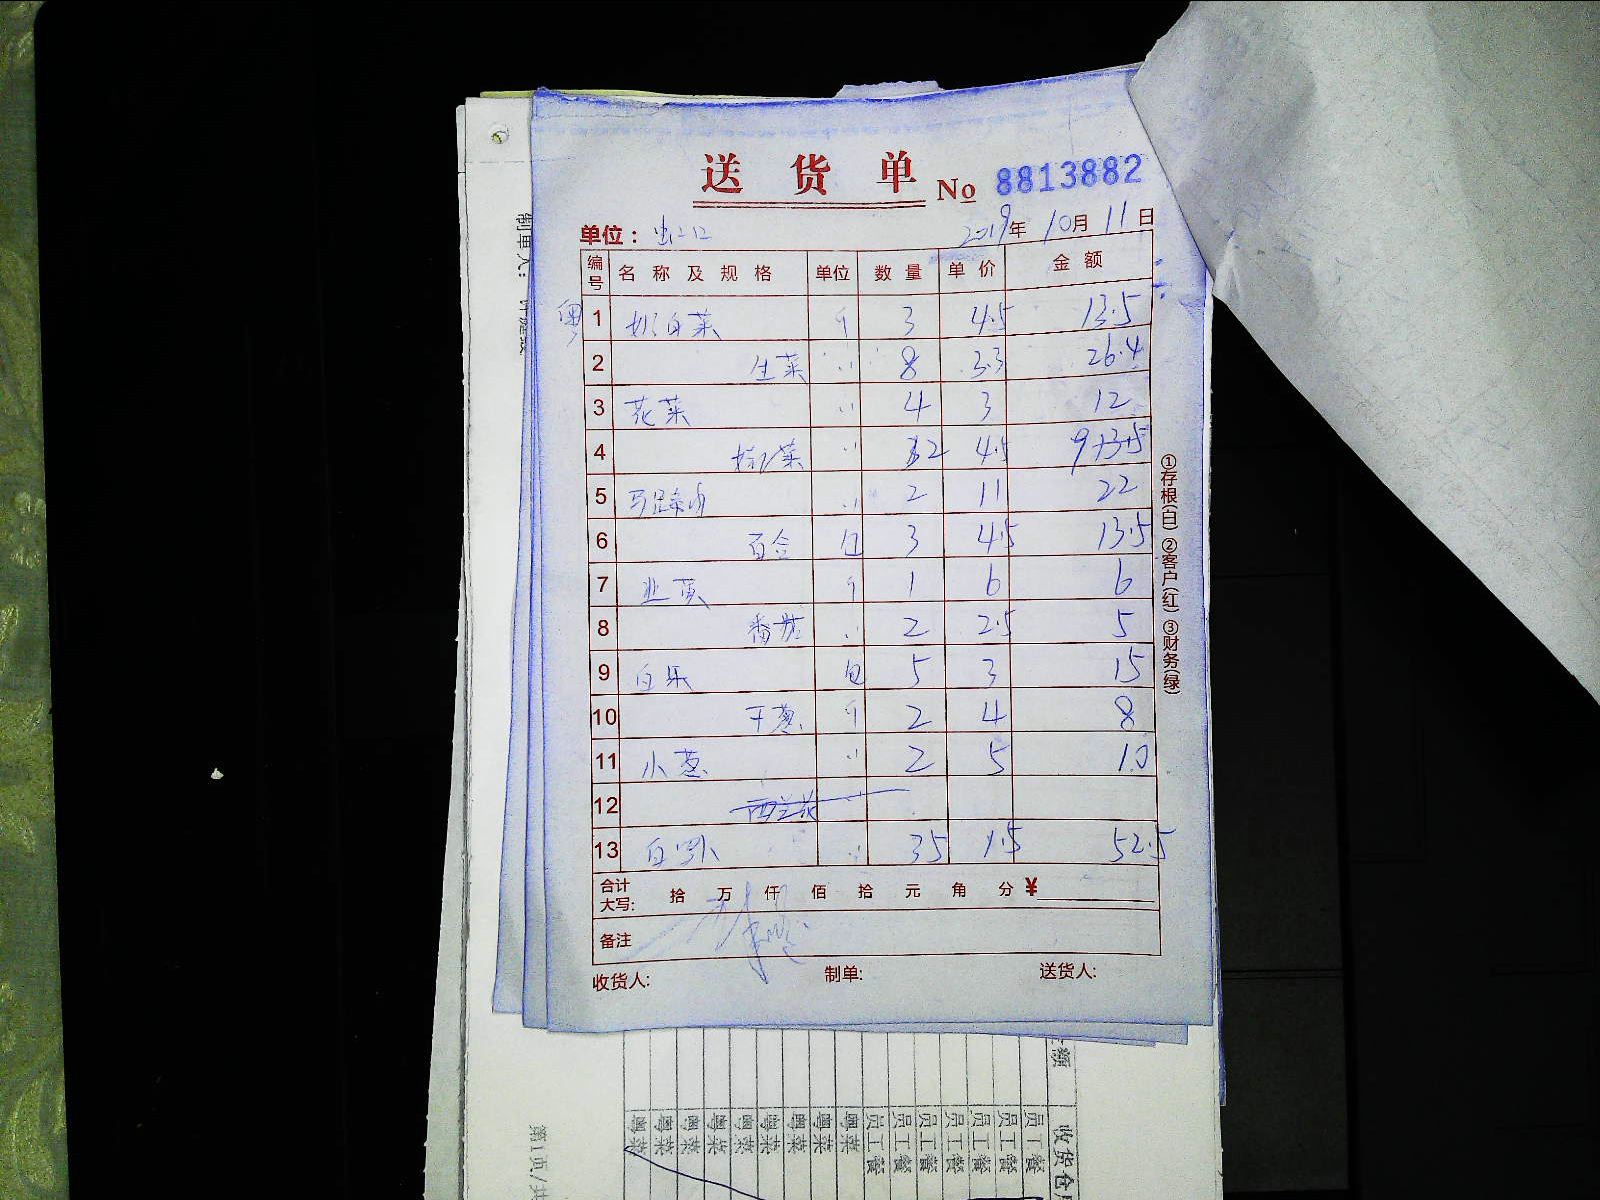 送货单 No 8813882
单位： 2019年10月11日
编号 名称及规格 单位 数量 单价 金额
粤 1 奶白菜 斤 3 4.5 13.5
2 生菜 〃 8 3.3 26.4
3 花菜 〃 4 3 12
4 菜 〃 2 4.5 9
5 〃 2 11 22
6 百合 包 3 4.5 13.5
7 韭黄 斤 1 6 6
8 番茄 〃 2 2.5 5
9 白玉 包 5 3 15
10 干葱 斤 2 4 8
11 小葱 〃 2 5 10
12 西兰花 〃
13 白罗卜 〃 35 1.5 52.5
合计大写: 拾 万 仟 佰 拾 元 角 分 ¥
备注
收货人: 制单: 送货人:
①存根(白) ②客户(红) ③财务(绿)
制单人:
第1页/共
收货仓
员工餐 员工餐 员工餐 员工餐 员工餐 员工餐 员工餐
粤菜 粤菜 粤菜 粤菜 粤菜 粤菜 粤菜 粤菜 粤菜